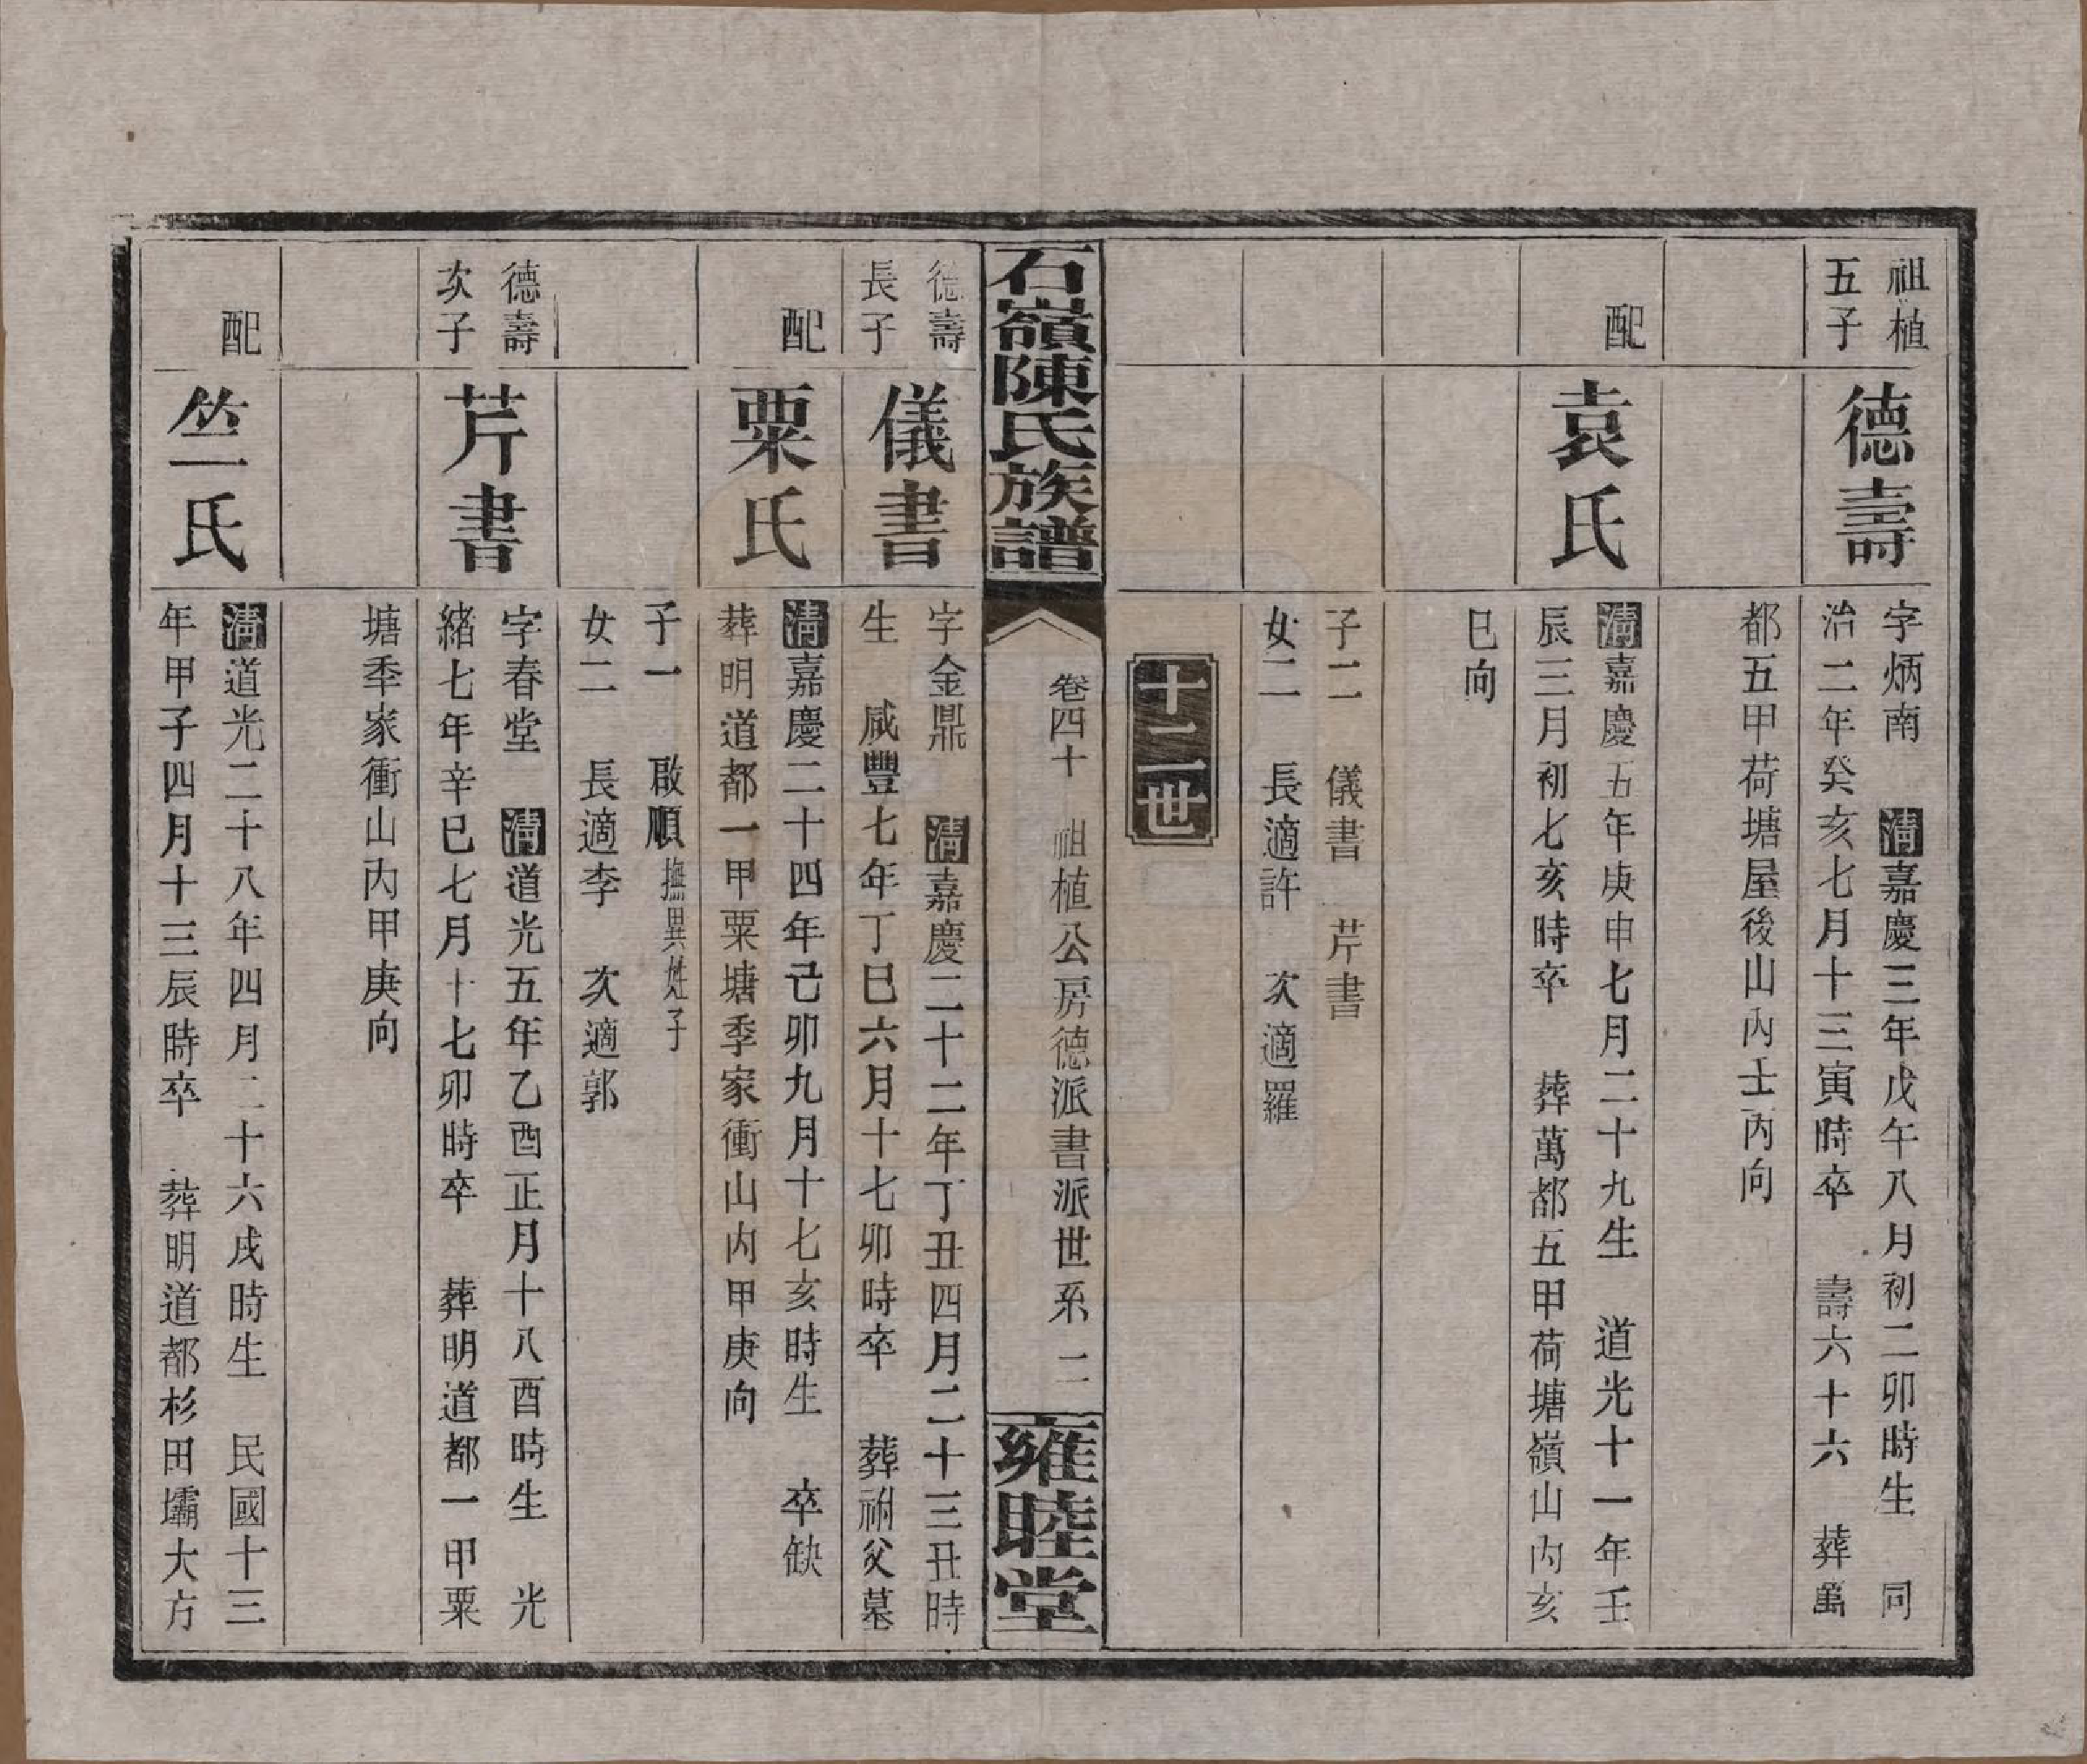 祖植
五子
德壽
字炳南　清嘉慶三年戊午八月初二卯時生　同
治二年癸亥七月十三寅時卒　壽六十六　葬萬
都五甲荷塘屋後山內壬丙向
配
袁氏
清嘉慶五年庚申七月二十九生　道光十一年壬
辰三月初七亥時卒　葬萬都五甲荷塘嶺山內亥
巳向
子二　儀書　芹書
女二　長適許　次適羅
十二世
石嶺陳氏族譜
卷四十　祖植公房德派書派世系　二
雍睦堂
德壽
長子
儀書
字金鼎　清嘉慶二十二年丁丑四月二十三丑時
生　咸豐七年丁巳六月十七卯時卒　葬祔父墓
配
粟氏
清嘉慶二十四年己卯九月十七亥時生　卒缺
葬明道都一甲粟塘季家衝山內甲庚向
子一　啟順撫異姓子
女二　長適李　次適郭
德壽
次子
芹書
字春堂　清道光五年乙酉正月十八酉時生　光
緒七年辛巳七月十七卯時卒　葬明道都一甲粟
塘季家衝山內甲庚向
配
竺氏
清道光二十八年四月二十六戌時生　民國十三
年甲子四月十三辰時卒　葬明道都杉田壩大方